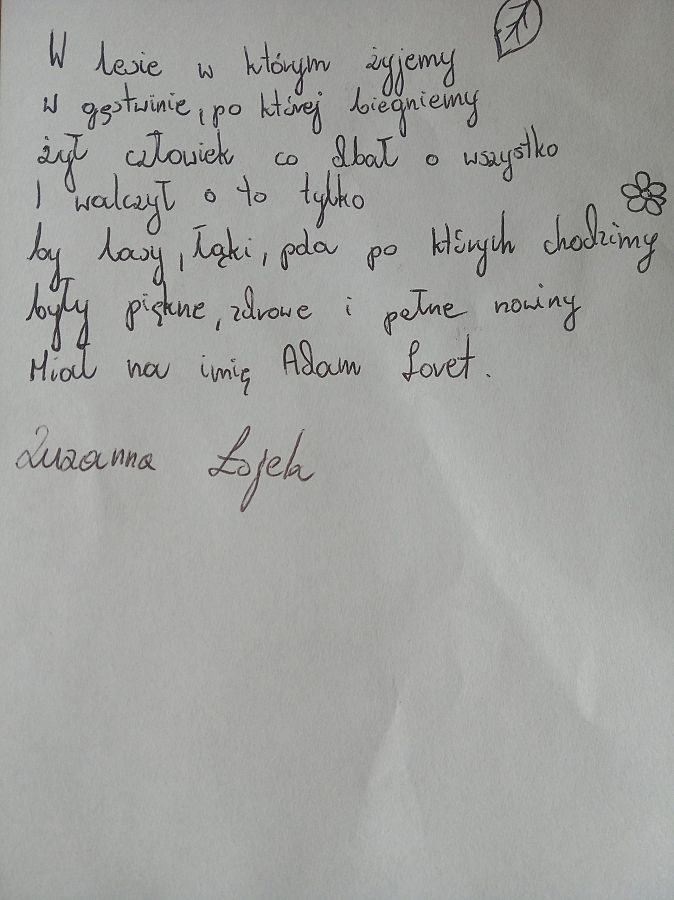 W lesie w którym żyjemy
w gęstwinie, po której biegniemy
żył człowiek co dbał o wszystko
I walczył o to tylko
by lasy, łąki, pola po których chodzimy
były piękne, zdrowe i pełne nowiny
Miał na imię Adam Loret.
Zuzanna Łojek